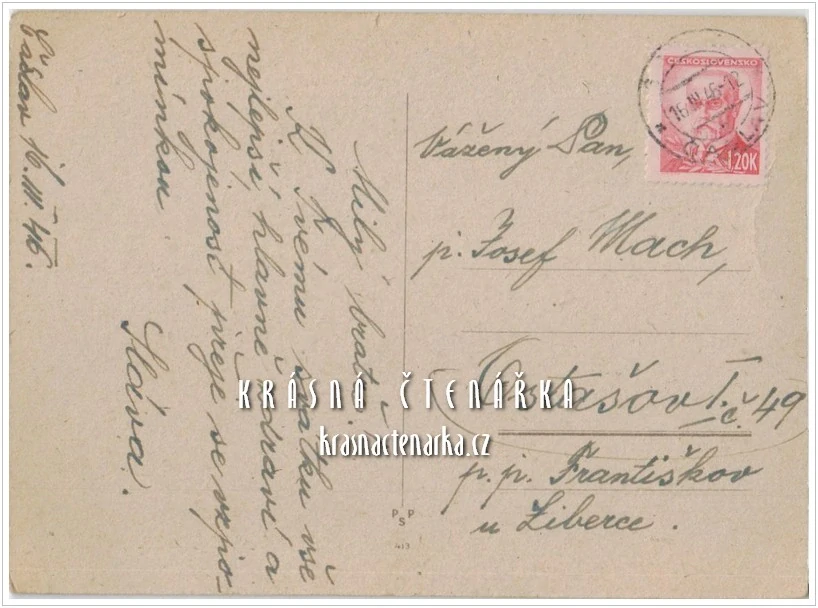 Čáslav 16.III.46.
Milý bratře,
K Tvému svátku vše
nejlepší, hlavně zdraví a
spokojenost přeje se vzpo-
mínkou
Sláva.
ČESKOSLOVENSKO
1.20K
16.III.46-12
Vážený Pan,
p. Josef Mach,
Ostašov I. č. 49
p. p. Františkov
u Liberce.
KRÁSNÁ ČTENÁŘKA
krasnactenarka.cz
PSP